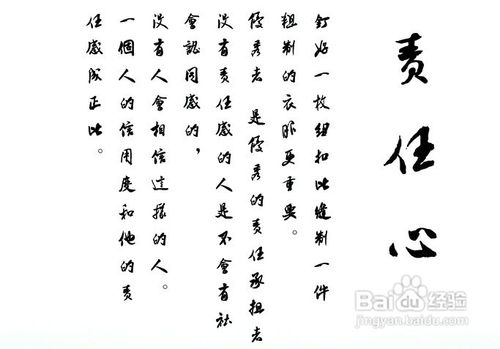 责任心
釘好一枚纽扣比縫制一件
粗制的衣服更重要。
優秀者 是優秀的责任承担者
没有责任感的人是不會有社
會認同感的，
没有人會相信這樣的人。
一個人的信用度和他的责
任感成正比。
Baidu经验
jingyan.baidu.com